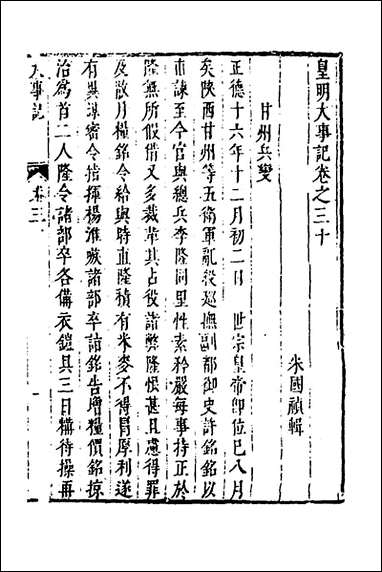 皇明大事記卷之三十
朱國禎輯
甘州兵變
正德十六年十二月初二日 世宗皇帝卽位已八月
矣陝西甘州等五衛軍亂殺巡撫副都御史許銘銘以
直諫至今官與總兵李隆同里性素矜嚴每事持正於
隆無所假借又多裁革其占役諸弊隆恨甚且慮得罪
及散月糧銘令給與時直隆積有米麥不得肩摩利遂
有異謀密令指揮楊淮嗾諸部卒詣銘告增糧價銘掠
治爲首二人隆令諸部卒各備衣鎧具三日糗待操再
大事記 卷三